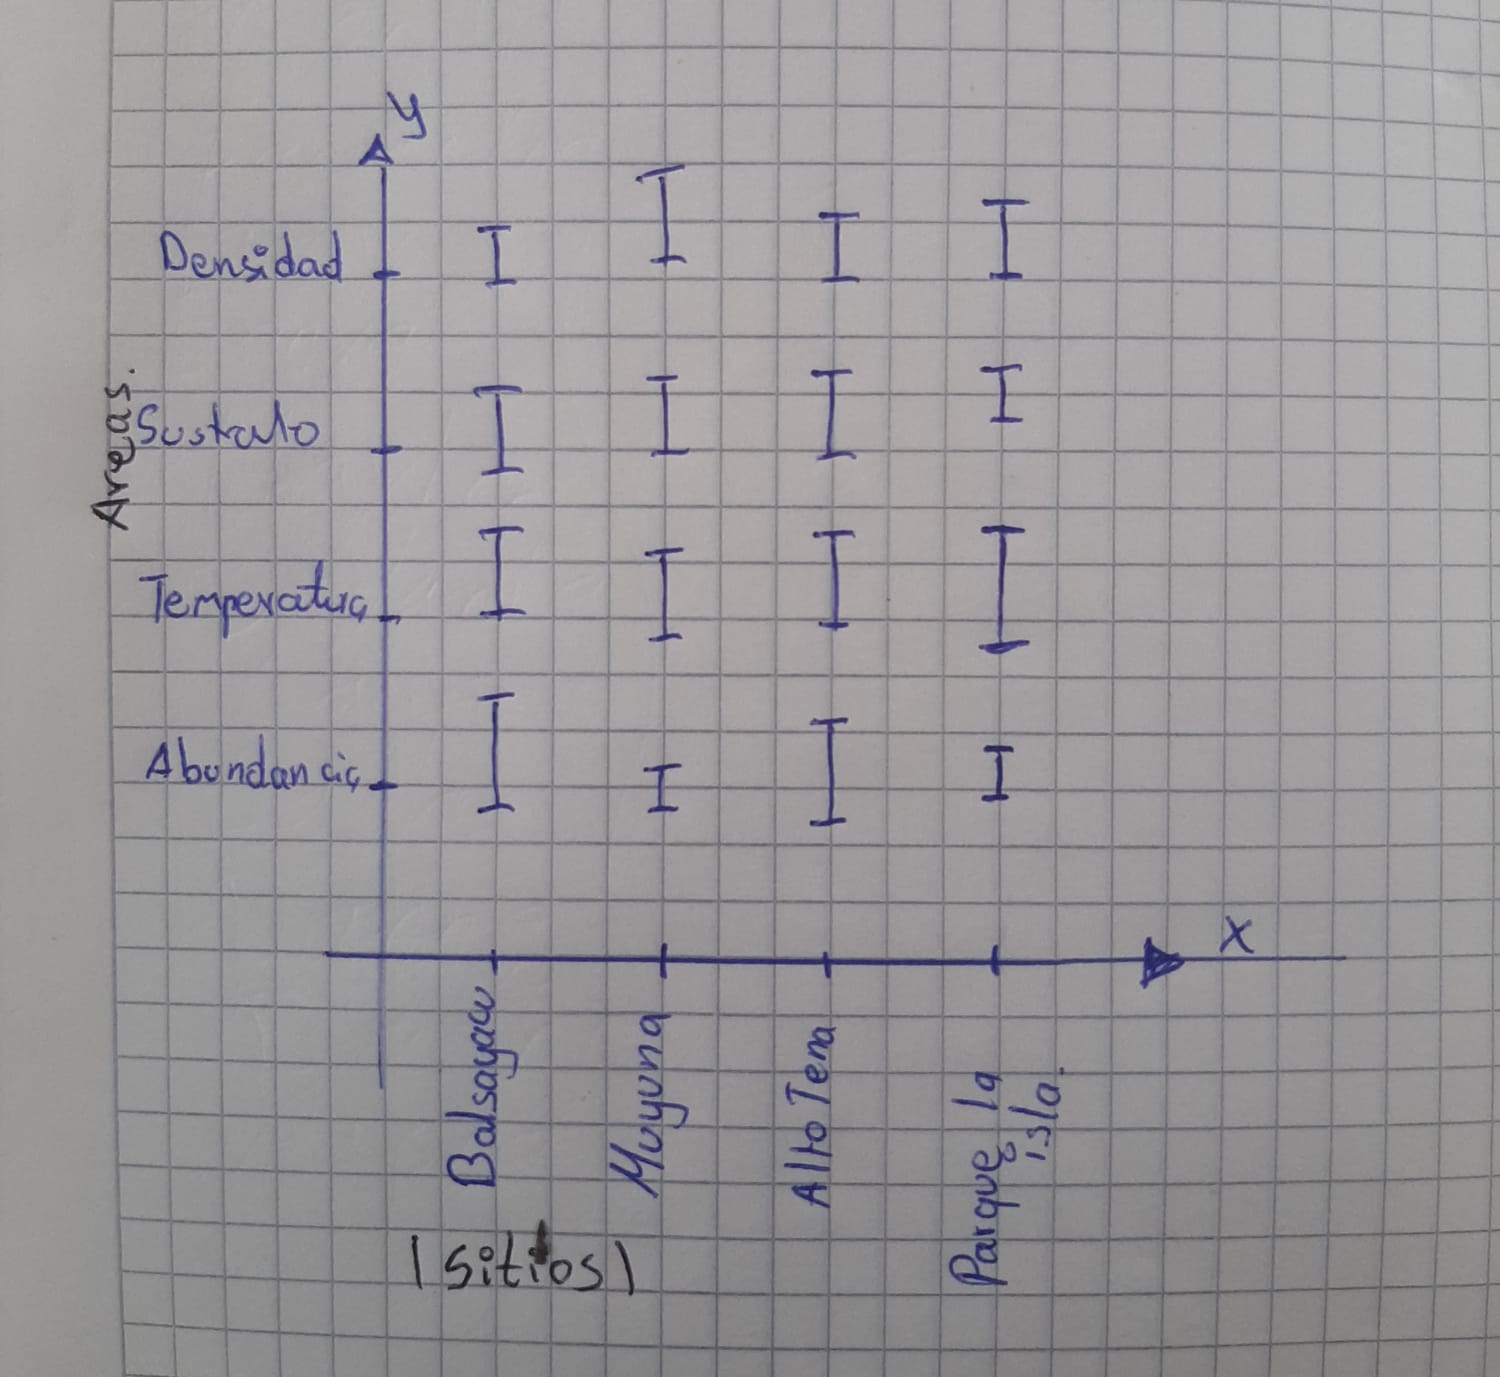 y
Densidad
Areas.
Sustrato
Temperatura
Abundancia
x
Balsayacu
Muyuna
Alto Tena
Parque la
isla.
(sitios)